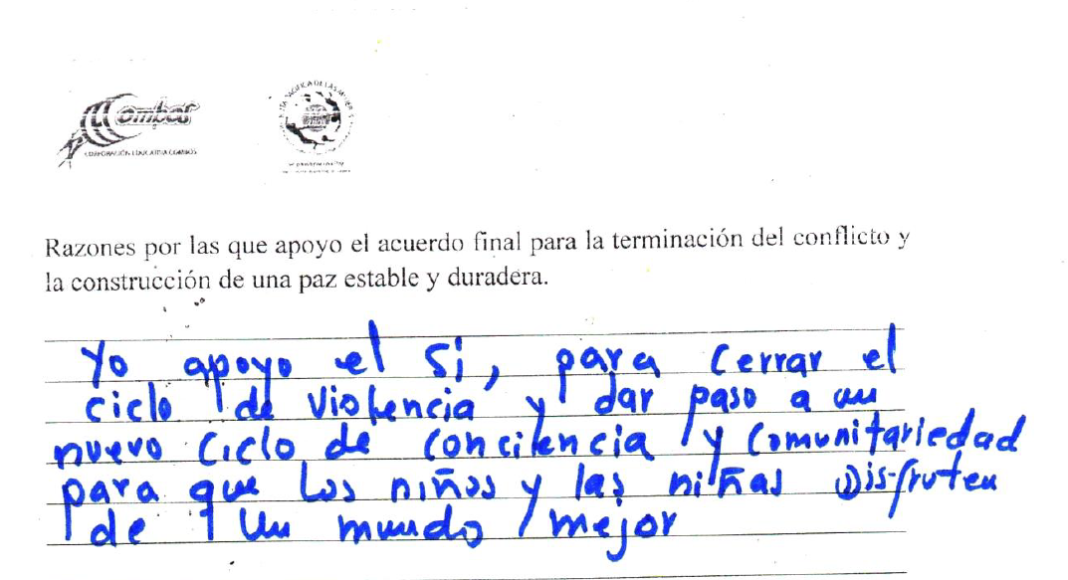 Combos
CORPORACIÓN EDUCATIVA COMBOS
Razones por las que apoyo el acuerdo final para la terminación del conflicto y
la construcción de una paz estable y duradera.
Yo apoyo el Si, para cerrar el
ciclo de violencia y dar paso a un
nuevo ciclo de conciliencia y comunitariedad
para que los niños y las niñas Disfruten
de un mundo mejor